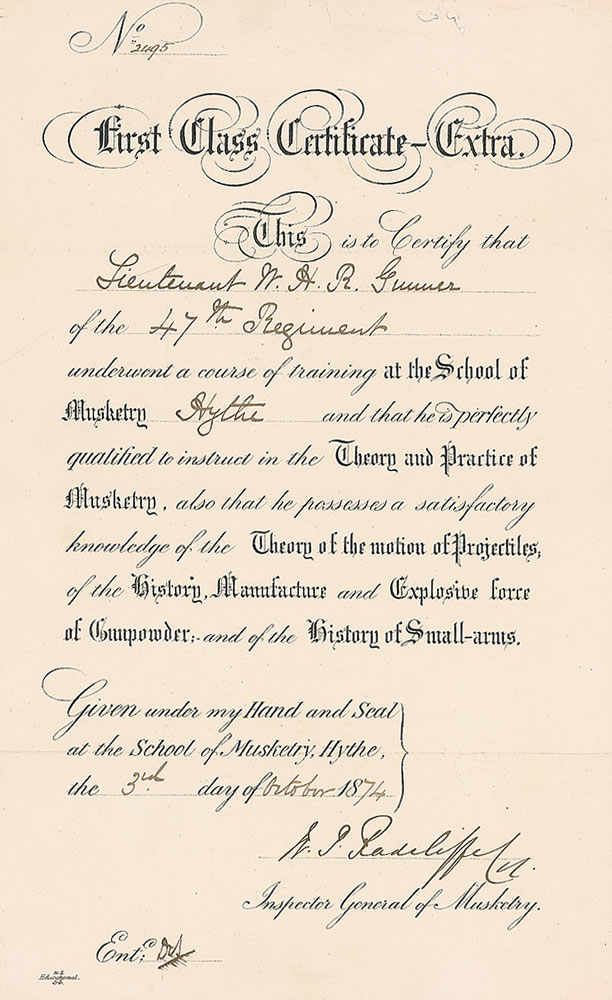 No 2495
First Class Certificate-Extra.
This is to Certify that
Lieutenant W. H. R. Gunner
of the 47th Regiment
underwent a course of training at the School of
Musketry Hythe and that he is perfectly
qualified to instruct in the Theory and Practice of
Musketry, also that he possesses a satisfactory
knowledge of the Theory of the motion of Projectiles,
of the History, Manufacture and Explosive force
of Gunpowder;-and of the History of Small-arms.
Given under my Hand and Seal
at the School of Musketry, Hythe,
the 3rd day of October 1874
Radcliffe
Inspector General of Musketry.
Entd